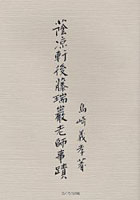 島崎義孝
蔭凉軒後藤瑞巖老師事蹟